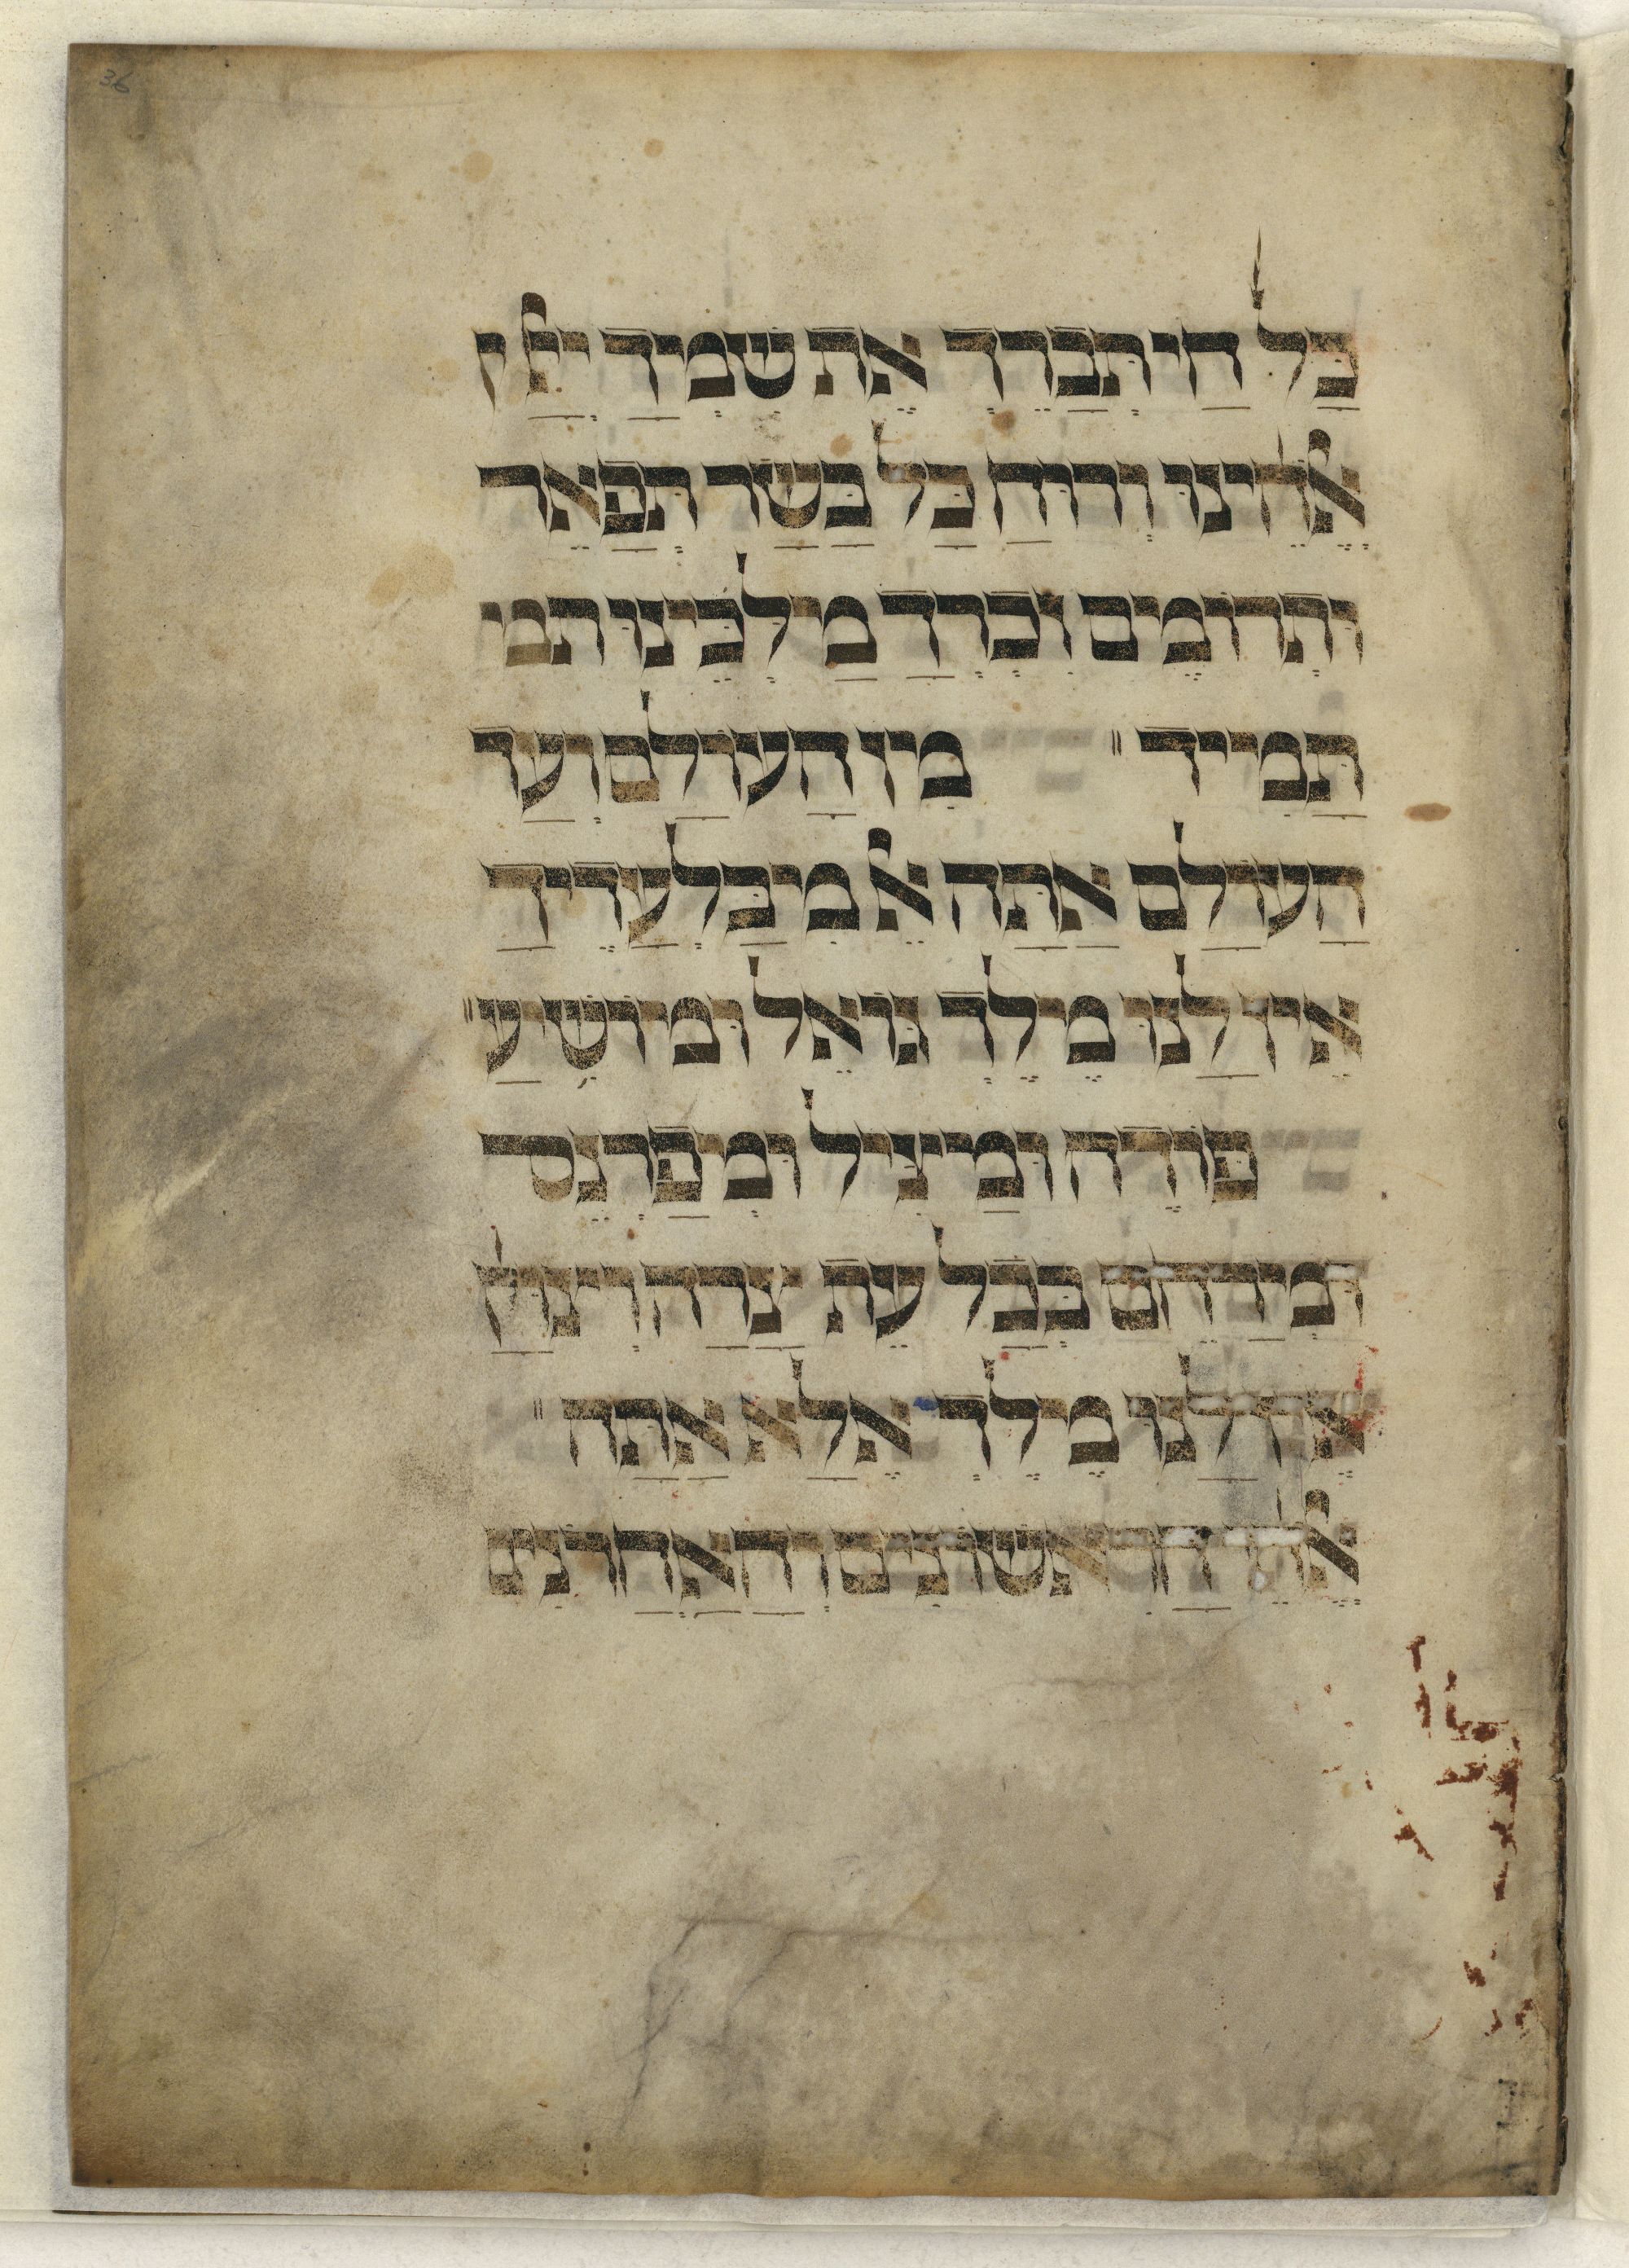 36
כָּל חַי תְּבָרֵךְ אֶת שְׁמָךְ יְיָ
אֱלֹהֵינוּ וְרוּחַ כָּל בָּשָׂר תְּפָאֵר
וּתְרוֹמֵם זִכְרְךָ מַלְכֵּינוּ תמי
תָּמִיד ׃ מִן הָעוֹלָם וְעַד
הָעוֹלָם אַתָּה אֵל מִבַּלְעָדֶיךָ
אֵין לָנוּ מֶלֶךְ גּוֹאֵל וּמוֹשִׁיעַ ׃
פּוֹדֶה וּמַצִּיל וּמְפַרְנֵס
וּמְרַחֵם בְּכָל עֵת צָרָה וְצוּקָה
אֵין לָנוּ מֶלֶךְ אֶלָּא אַתָּה ׃
אֱלֹהֵי הָרִאשׁוֹנִים וְהָאַחֲרוֹנִים